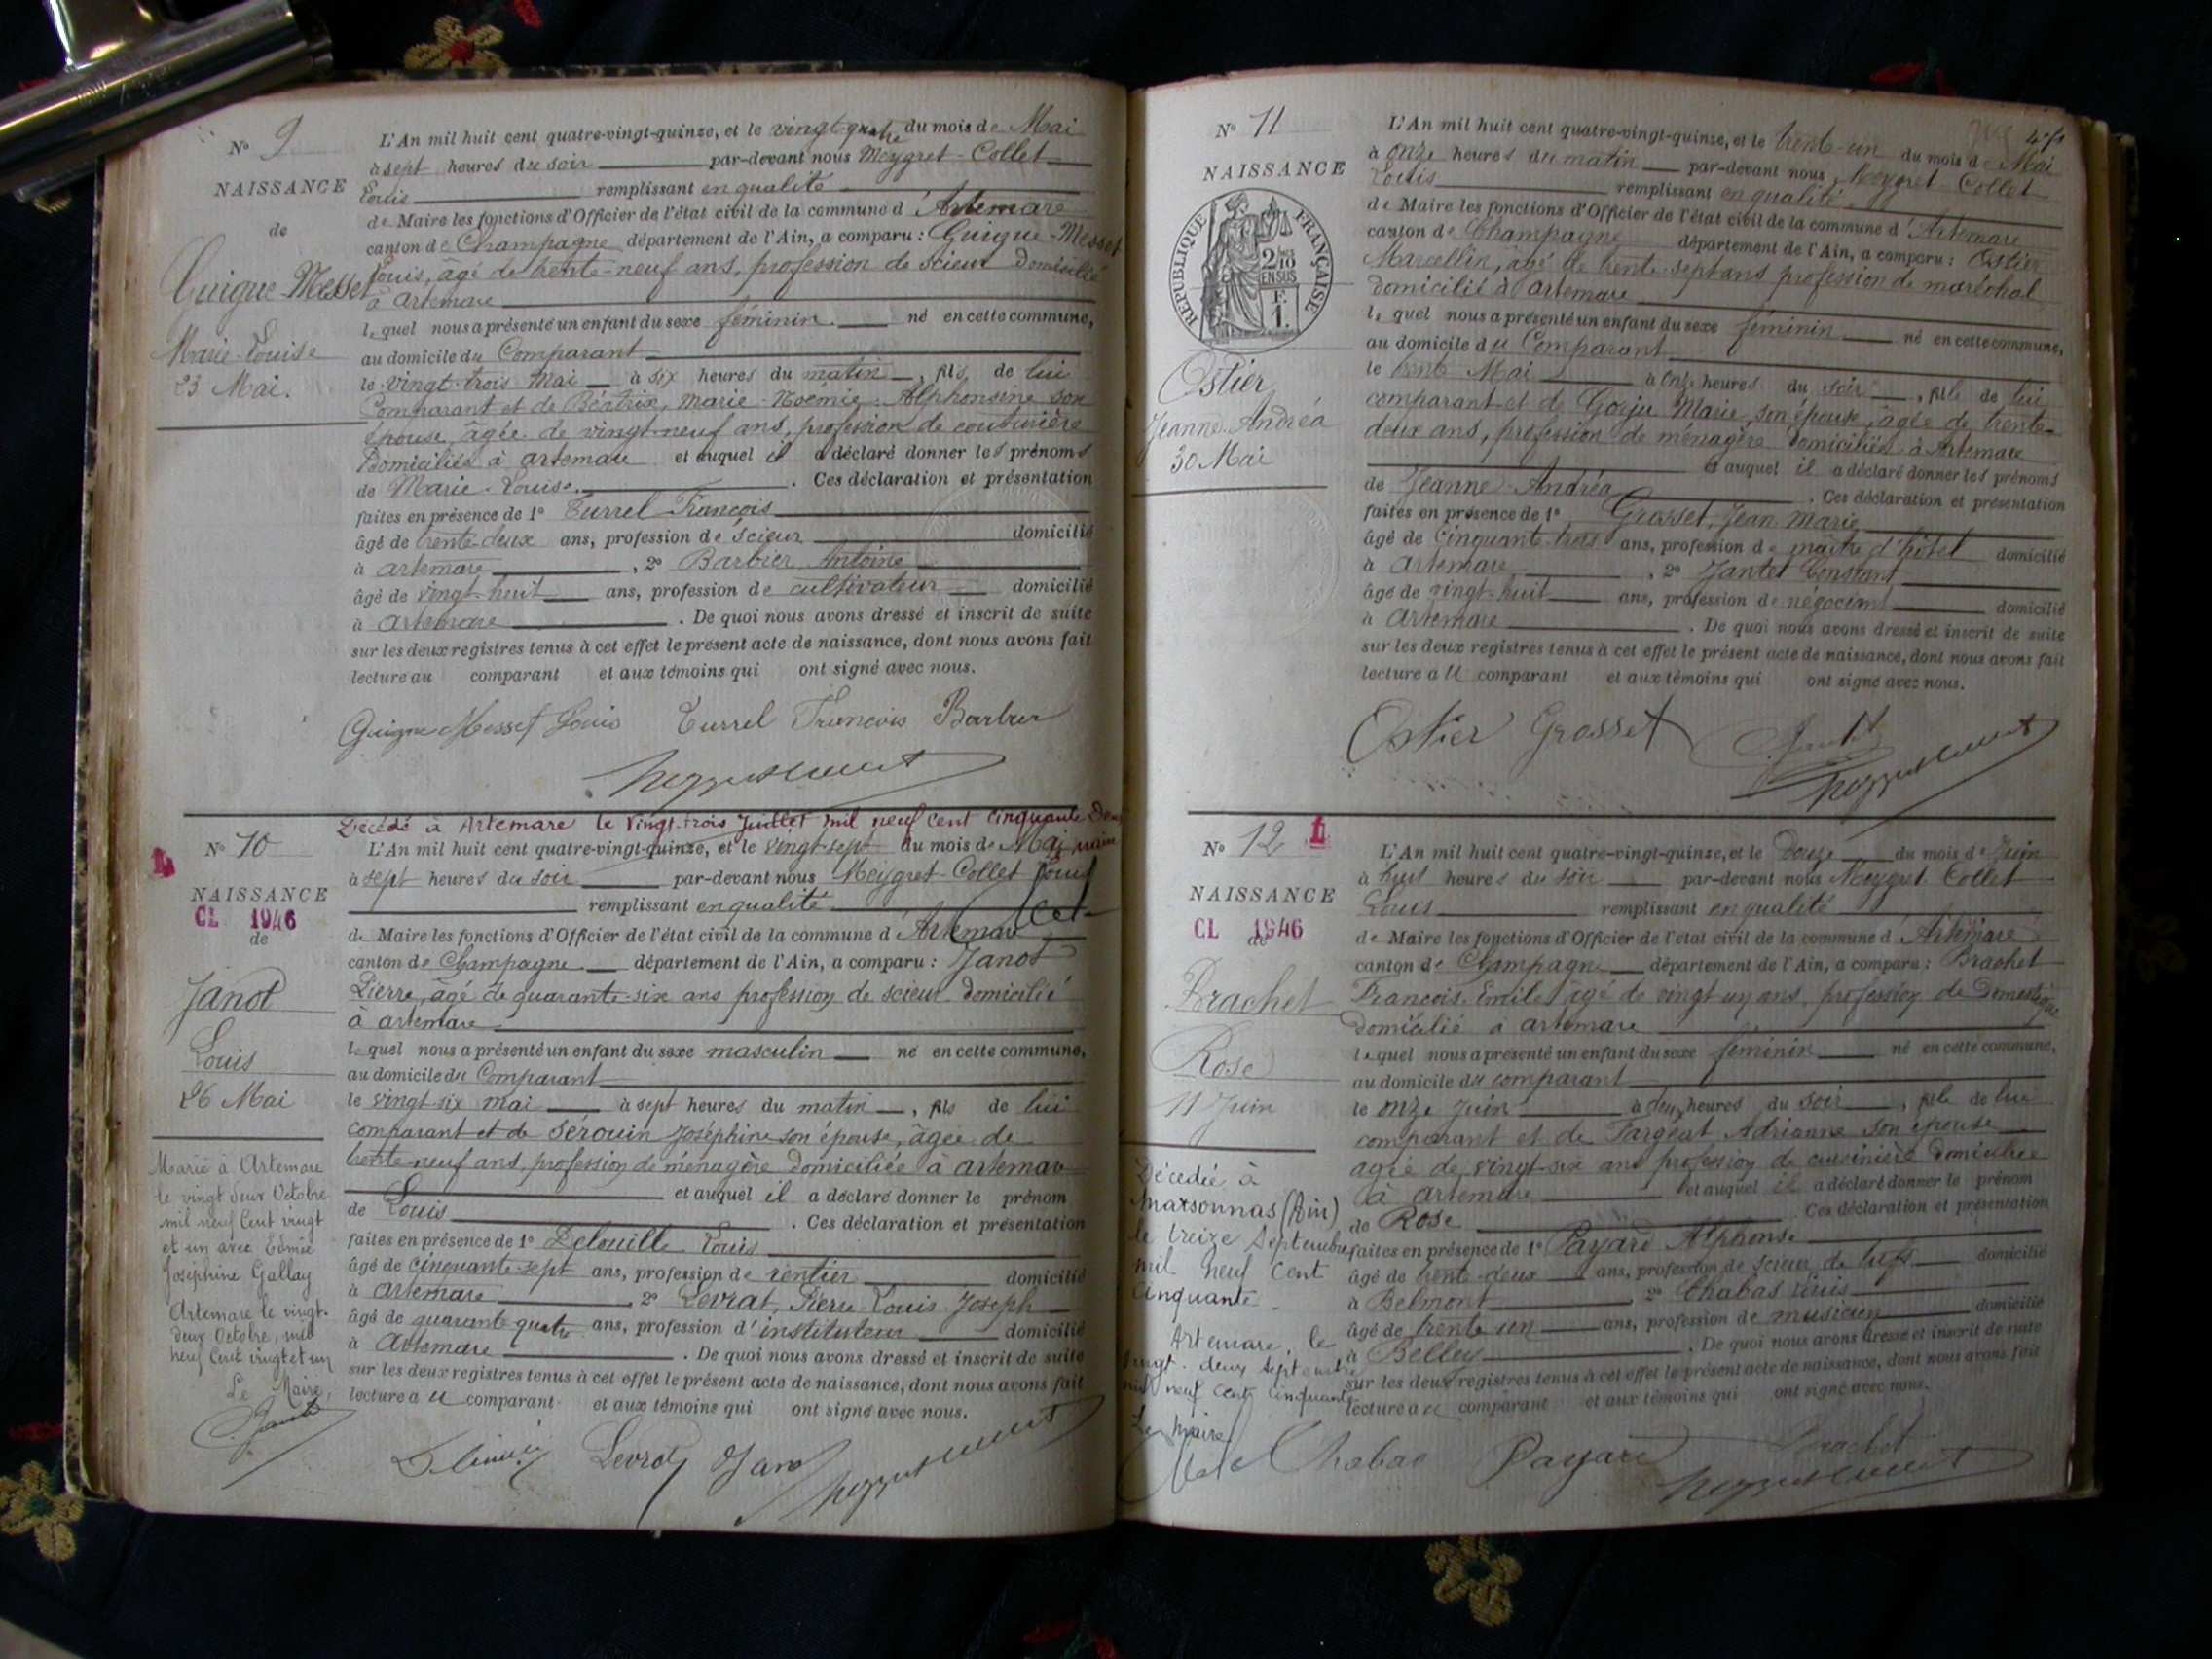 N° 9
NAISSANCE
de
Guigue-Messet
Marie-Louise
23 Mai.
L'An mil huit cent quatre-vingt-quinze, et le vingt-quatre du mois de Mai
à sept heures du soir par-devant nous Meygret-Collet
Louis remplissant en qualité
de Maire les fonctions d'Officier de l'état civil de la commune d'Artemare
canton de Champagne département de l'Ain, a comparu : Guigue-Messet
Louis, âgé de trente-neuf ans, profession de scieur domicilié
à Artemare
lequel nous a présenté un enfant du sexe féminin. né en cette commune,
au domicile du Comparant
le vingt-trois Mai à six heures du matin, fils de lui
Comparant et de Béatrix, Marie-Noémie-Alphonsine son
épouse, âgée de vingt-neuf ans, profession de couturière
Domiciliés à artemare et auquel il a déclaré donner les prénoms
de Marie-Louise. Ces déclaration et présentation
faites en présence de 1° Turrel François
âgé de trente-deux ans, profession de scieur domicilié
à artemare, 2° Barbier Antoine
âgé de vingt-huit ans, profession de cultivateur domicilié
à artemare. De quoi nous avons dressé et inscrit de suite
sur les deux registres tenus à cet effet le présent acte de naissance, dont nous avons fait
lecture au comparant et aux témoins qui ont signé avec nous.
Guigue Messet Louis Turrel François Barbier
N° 10
NAISSANCE
CL 1946
de
Janot
Louis
26 Mai
Marié à Artemare
le vingt deux Octobre
mil neuf Cent vingt
et un avec Edmée
Joséphine Gallay
Artemare le vingt-
deux Octobre, mil
neuf Cent vingt et un
Le Maire,
Décédé à Artemare le vingt-trois Juillet mil neuf cent cinquante
L'An mil huit cent quatre-vingt-quinze, et le vingt-sept du mois de Mai
à sept heures du soir par-devant nous Meygret-Collet Louis
remplissant en qualité
de Maire les fonctions d'Officier de l'état civil de la commune d'Artemare
canton de Champagne département de l'Ain, a comparu : Janot
Pierre, âgé de quarante-six ans profession de scieur domicilié
à artemare
lequel nous a présenté un enfant du sexe masculin né en cette commune,
au domicile du Comparant
le vingt-six mai à sept heures du matin, fils de lui
comparant et de Sérouin Joséphine son épouse, âgée de
trente-neuf ans, profession de ménagère domiciliée à artemare
et auquel il a déclaré donner le prénom
de Louis. Ces déclaration et présentation
faites en présence de 1° Delouille Louis
âgé de cinquante-sept ans, profession de rentier domicilié
à artemare, 2° Levrat, Pierre-Louis-Joseph
âgé de quarante quatre ans, profession d'instituteur domicilié
à Artemare. De quoi nous avons dressé et inscrit de suite
sur les deux registres tenus à cet effet le présent acte de naissance, dont nous avons fait
lecture au comparant et aux témoins qui ont signé avec nous.
Levrat Janot
N° 11
NAISSANCE
RÉPUBLIQUE FRANÇAISE
2/10
EN SUS
F.
1.
Ostier
Jeanne-Andréa
30 Mai
L'An mil huit cent quatre-vingt-quinze, et le trente-un du mois de Mai
à onze heures du matin par-devant nous Meygret-Collet
Louis remplissant en qualité
de Maire les fonctions d'Officier de l'état civil de la commune d'Artemare
canton de Champagne département de l'Ain, a comparu : Ostier
Marcellin, âgé de trente-sept ans profession de maréchal
domicilié à artemare
lequel nous a présenté un enfant du sexe féminin né en cette commune,
au domicile du Comparant
le trente Mai à onze heures du soir, fille de lui
comparant et de Gorju Marie, son épouse, âgée de trente-
deux ans, profession de ménagère domiciliés à Artemare
et auquel il a déclaré donner les prénoms
de Jeanne-Andréa. Ces déclaration et présentation
faites en présence de 1° Grosset, Jean Marie
âgé de cinquante-trois ans, profession de maître d'hôtel domicilié
à artemare, 2° Jantet Constant
âgé de vingt-huit ans, profession de négociant domicilié
à Artemare. De quoi nous avons dressé et inscrit de suite
sur les deux registres tenus à cet effet le présent acte de naissance, dont nous avons fait
lecture au comparant et aux témoins qui ont signé avec nous.
Ostier Grosset
N° 12
NAISSANCE
CL 1946
de
Brachet
Rose
11 Juin
Décédée à
Marsonnas (Ain)
le treize Septembre
mil neuf cent
cinquante
Artemare, le
vingt-deux septembre
mil neuf cent cinquante
Le Maire
L'An mil huit cent quatre-vingt-quinze, et le douze du mois de Juin
à huit heures du soir par-devant nous Meygret-Collet
Louis remplissant en qualité
de Maire les fonctions d'Officier de l'état civil de la commune d'Artemare
canton de Champagne département de l'Ain, a comparu : Brachet
François-Emile, âgé de vingt un ans, profession de domestique
domicilié à artemare
lequel nous a présenté un enfant du sexe féminin né en cette commune,
au domicile du comparant
le onze Juin à heures du soir, fille de lui
comparant et de Targeat Adrianne son épouse
âgée de vingt-six ans profession de cuisinière domiciliée
à artemare et auquel il a déclaré donner le prénom
de Rose Ces déclaration et présentation
faites en présence de 1° Payard Alphonse
âgé de trente-deux ans, profession de scieur de tufs domicilié
à Belmont 2° Chabas Louis
âgé de trente un ans, profession de musicien domicilié
à Belley. De quoi nous avons dressé et inscrit de suite
sur les deux registres tenus à cet effet le présent acte de naissance, dont nous avons fait
lecture au comparant et aux témoins qui ont signé avec nous.
Chabas Payard Brachet